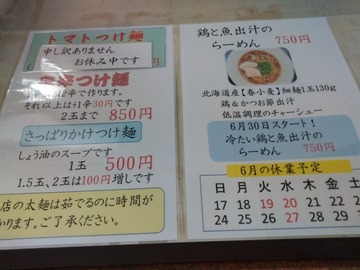 トマトつけ麺
申し訳ありません
お休み中です
つけ麺
辛で作ります。
それ以上は+1辛30円です
2玉まで 850円
さっぱりかけつけ麺
しょう油のスープです
1玉 500円
1.5玉、2玉は100円増しです
店の太麺は茹でるのに時間が
かります。ご了承ください。
鶏と魚出汁の
らーめん 750円
北海道産【春小麦】細麺1玉130g
鶏&かつお節出汁
低温調理のチャーシュー
6月30日スタート!
冷たい鶏と魚出汁の
らーめん 750円
6月の休業予定
日 月 火 水 木 金 土
17 18 19 20 21 22
24 25 26 27 28 29